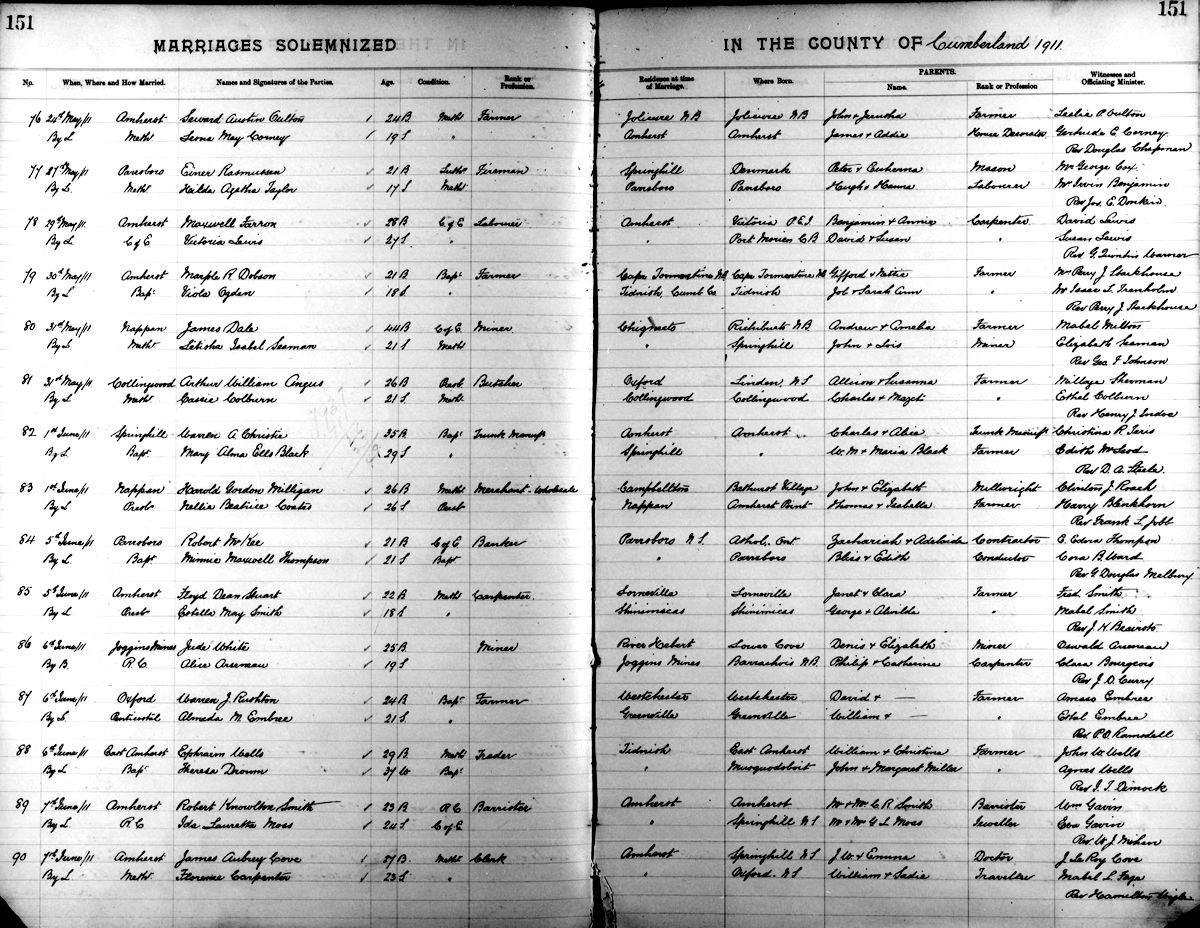 151 151
MARRIAGES SOLEMNIZED IN THE COUNTY OF Cumberland 1911.
No. When, Where and How Married. Names and Signatures of the Parties. Age. Condition. Rank or Profession. Residence at time of Marriage. Where Born. PARENTS. Name. Rank or Profession Witnesses and Officiating Minister.
76 24th May/11 Amherst Seward Austin Oulton 24 B Meth Farmer Jolicure N B Jolicure N B John & Jerusha Farmer Leslie P. Oulton
By L Meth Leona May Corney 19 S " Amherst Amherst James & Addie Gertrude E. Corney
Rev Douglas Chapman
77 27th May/11 Parrsboro Einer Rasmussen 21 B Luth Fireman Springhill Denmark Peter & Mason Mr George Cox
By L. Meth Hulda Agatha Taylor 17 S Meth Parrsboro Parrsboro Hugh & Hanna Labourer Mr Irvin Benjamin
Rev Jos. E Donkin
78 29th May/11 Amherst Maxwell Farron 28 B C of E Labourer Amherst Victoria P.E.I Benjamin & Annie Carpenter David Lewis
By L C of E Victoria Lewis 27 S " " Port Morien C B David & Susan " Susan Lewis
Rev G. Quintin Warner
79 30th May/11 Amherst Marple R Dobson 21 B Bapt Farmer Cape Tormentine NB Cape Tormentine NB Gifford & Nettie Farmer Mr Percy J Stackhouse
By L Bapt Viola Ogden 18 S " Tidnish, Cumb Co Tidnish Job & Sarah Ann " Mr Isaac L Trenholm
Rev Percy J Stackhouse
80 31st May/11 Nappan James Dale 44 B C of E Miner Chignecto Richibucto N B Andrew & Amelia Farmer Mabel Melton
By L Meth Letisha Isabel Seaman 21 S Meth " Springhill John & Lois Miner Elizabeth Seaman
Rev Geo. F Johnson
81 31st May/11 Collingwood Arthur William Angus 26 B Presb Butcher Oxford Linden, N S Allison & Susanna Farmer Millage Sherman
By L Meth Cassie Colburn 21 S Meth Collingwood Collingwood Charles & " Ethel Colburn
Rev Henry J Indoe
82 1st June/11 Springhill Warren A Christie 35 B Bapt Trunk Manuf Amherst Amherst Charles & Alice Trunk Manuf Christina R
By L Bapt Mary Alma Ells Black 29 S " Springhill " W. M & Maria Black Farmer Edith McLeod
Rev D. A. Steele
83 1st June/11 Nappan Harold Gordon Milligan 26 B Meth Merchant - Wholesale Campbellton Bathurst Village John & Elizabeth Millwright Clinton J. Roach
By L Presb Nellie Beatrice Coates 26 S Presb Nappan Amherst Point Thomas & Isabella Farmer Harry Blenkhorn
Rev Frank L Jobb
84 5th June/11 Parrsboro Robert McKee 21 B C of E Banker Parrsboro N S. Athol, Ont Zachariah & Adelaide Contractor E. Edna Thompson
By L. Bapt Minnie Maxwell Thompson 21 S Bapt " Parrsboro Bliss & Edith Conductor Cora B Ward
Rev G. Douglas Milbury
85 5th June/11 Amherst Floyd Dean Stuart 22 B Meth Carpenter Lorneville Lorneville Janet & Clara Farmer Fred Smith
By L Presb Estella May Smith 18 S " Shinimicas Shinimicas George & Alvilda " Mabel Smith
Rev J. H. Beairsto
86 6th June/11 Joggins Mines Jude White 25 B Miner River Hebert Lower Cove Denis & Elizabeth Miner Oswald Arseneau
By B. R. C Alice Arseneau 19 S Joggins Mines Barrachois N.B. Philip & Catherine Carpenter Clara Bourgeois
Rev J. D. Curry
87 6th June/11 Oxford Warren J. Rushton 24 B Bapt Farmer Westchester Westchester David & — Farmer Amasa Embree
By L Almeda M. Embree 21 S " Greenville Greenville William & — " Ethel Embree
Rev P.O. Ramsdell
88 6th June/11 East Amherst Ephraim Wells 29 B Meth Trader Tidnish East Amherst William & Christina Farmer John W. Wells
By L Bapt Theresa Drown 37 W Bapt " Musquodoboit John & Margaret Miller " Agnes Wells
Rev I. T. Dimock
89 7th June/11 Amherst Robert Knowlton Smith 23 B R C Barrister Amherst Amherst Mr & Mrs C R Smith Barrister Wm Gavin
By L. R. C Ida Lauretta Moss 24 S C of E " Springhill N S Mr & Mrs G L Moss Jeweller Eva Gavin
Rev W. J. Mihan
90 7th June/11 Amherst James Aubrey Cove 27 B. Meth Clerk Amherst Springhill N S J. W & Emma Doctor J. LeRoy Cove
By L. Meth Florence Carpenter 23 S " " Oxford N S William & Sadie Traveller Mabel L. Page
Rev Hamilton